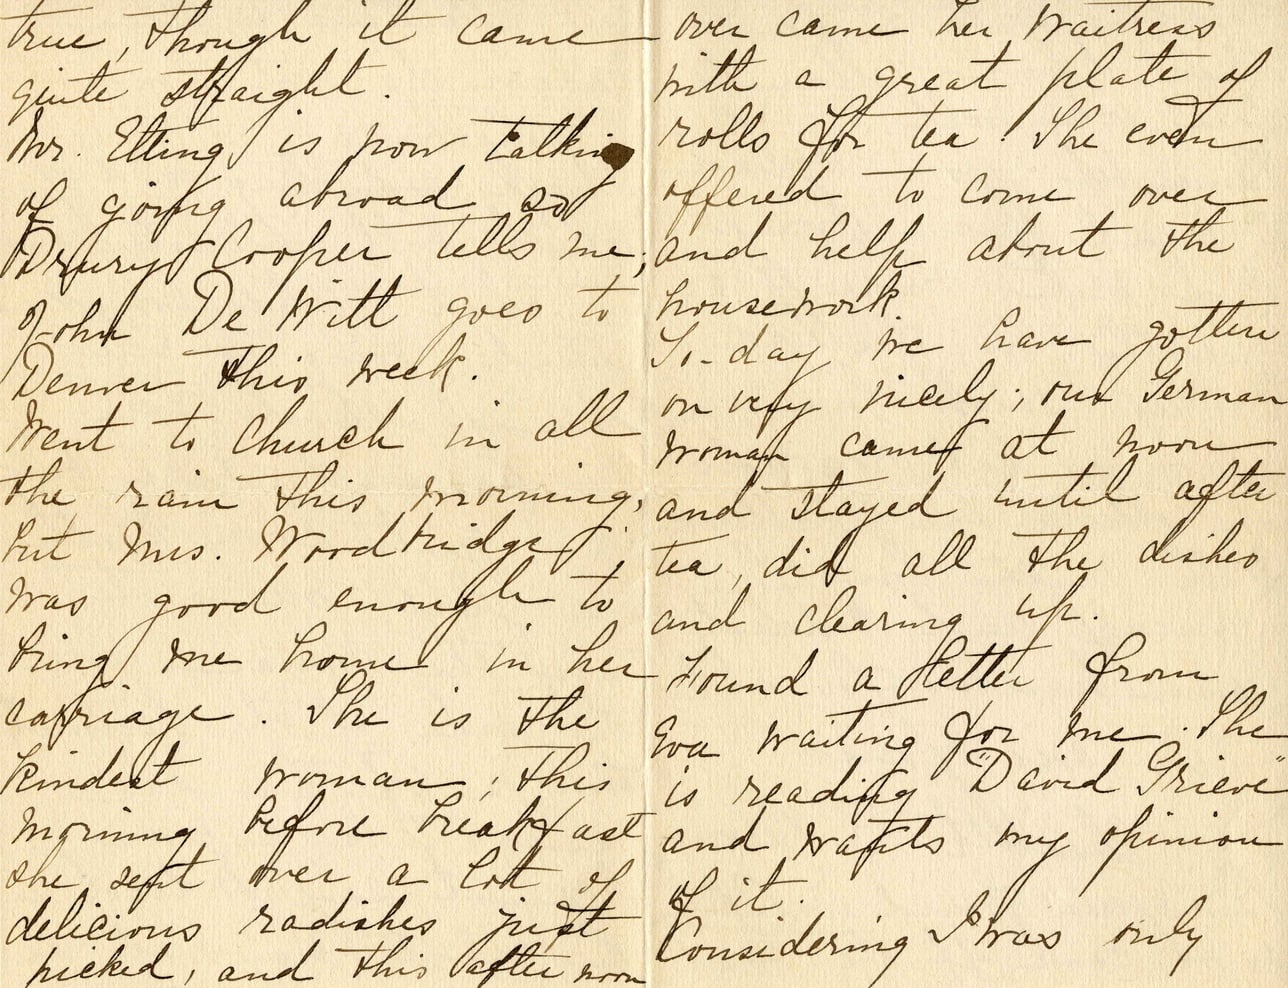 true, though it came
quite straight.
Mr. Etting is now talking
of going abroad so
Drury Cooper tells me;
John De Witt goes to
Denver this week.
Went to church in all
the rain this morning,
but Mrs. Woodbridge
was good enough to
bring me home in her
carriage. She is the
kindest woman; this
morning before breakfast
she sent over a lot of
delicious radishes just
picked, and this afternoon
over came her waitress
with a great plate of
rolls for tea. She even
offered to come over
and help about the
housework.
To-day we have gotten
on very nicely; our German
woman came at noon
and stayed until after
tea, did all the dishes
and clearing up.
Found a letter from
Eva waiting for me. She
is reading "David Grieve"
and wants my opinion
of it.
Considering I was only